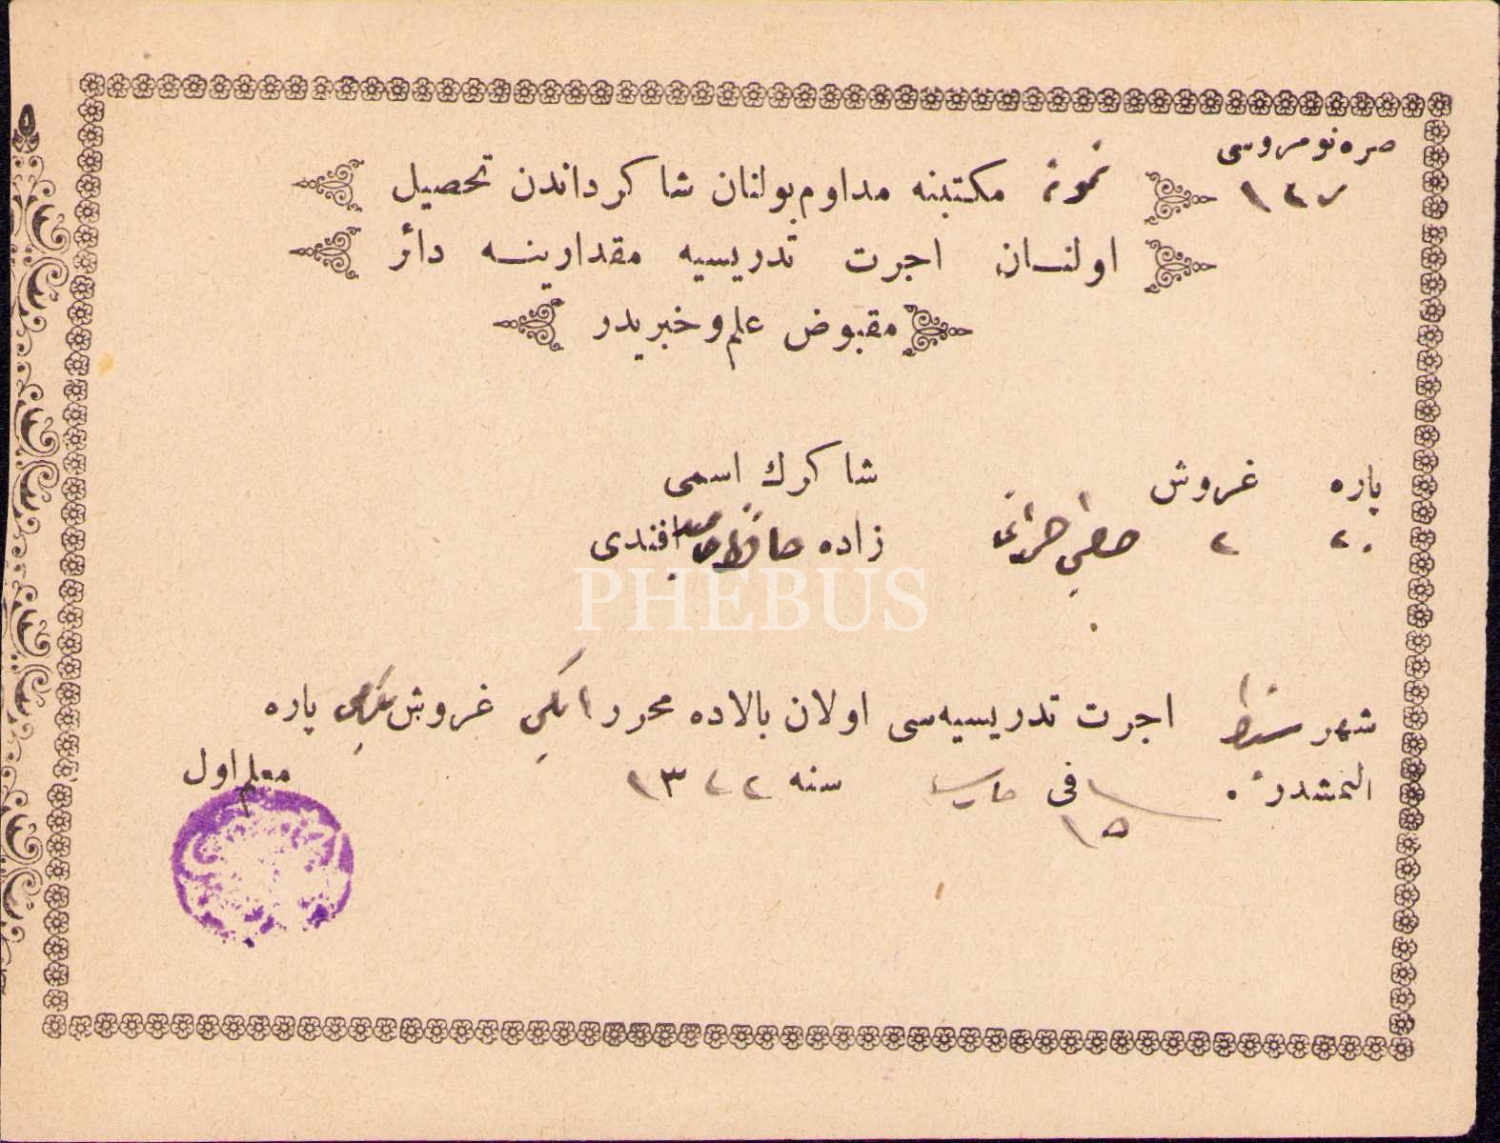 صره نومروسی
١٤٧
نمونهٔ مکتبنه مداوم بولنان شاکرداندن تحصیل
اولنـان اجرت تدریسیه مقدارینـه دائر
مقبوض علم و خبریدر
پاره غروش شاکرك اسمی
٢٠ ٢ زاده حافظ افندی
PHEBUS
شهر شباط اجرت تدریسیه‌سی اولان بالاده محرر ایکی غروش یکرمی پاره
آلنمشدر. فی ١٥ مارت سنه ١٣٢٢
معلم اول